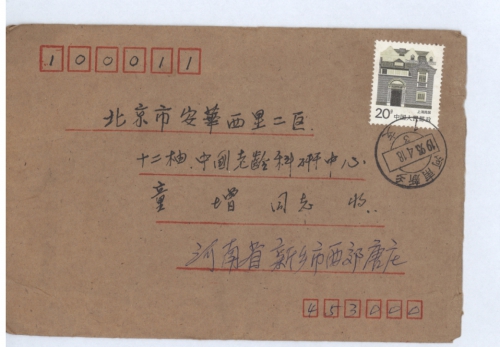 100011
北京市安華西里二区
十二楼.中国老龄科研中心
童增 同志 收
河南省新乡市西郊唐庄
453000
上海民居
20分 中国人民邮政
河南新乡